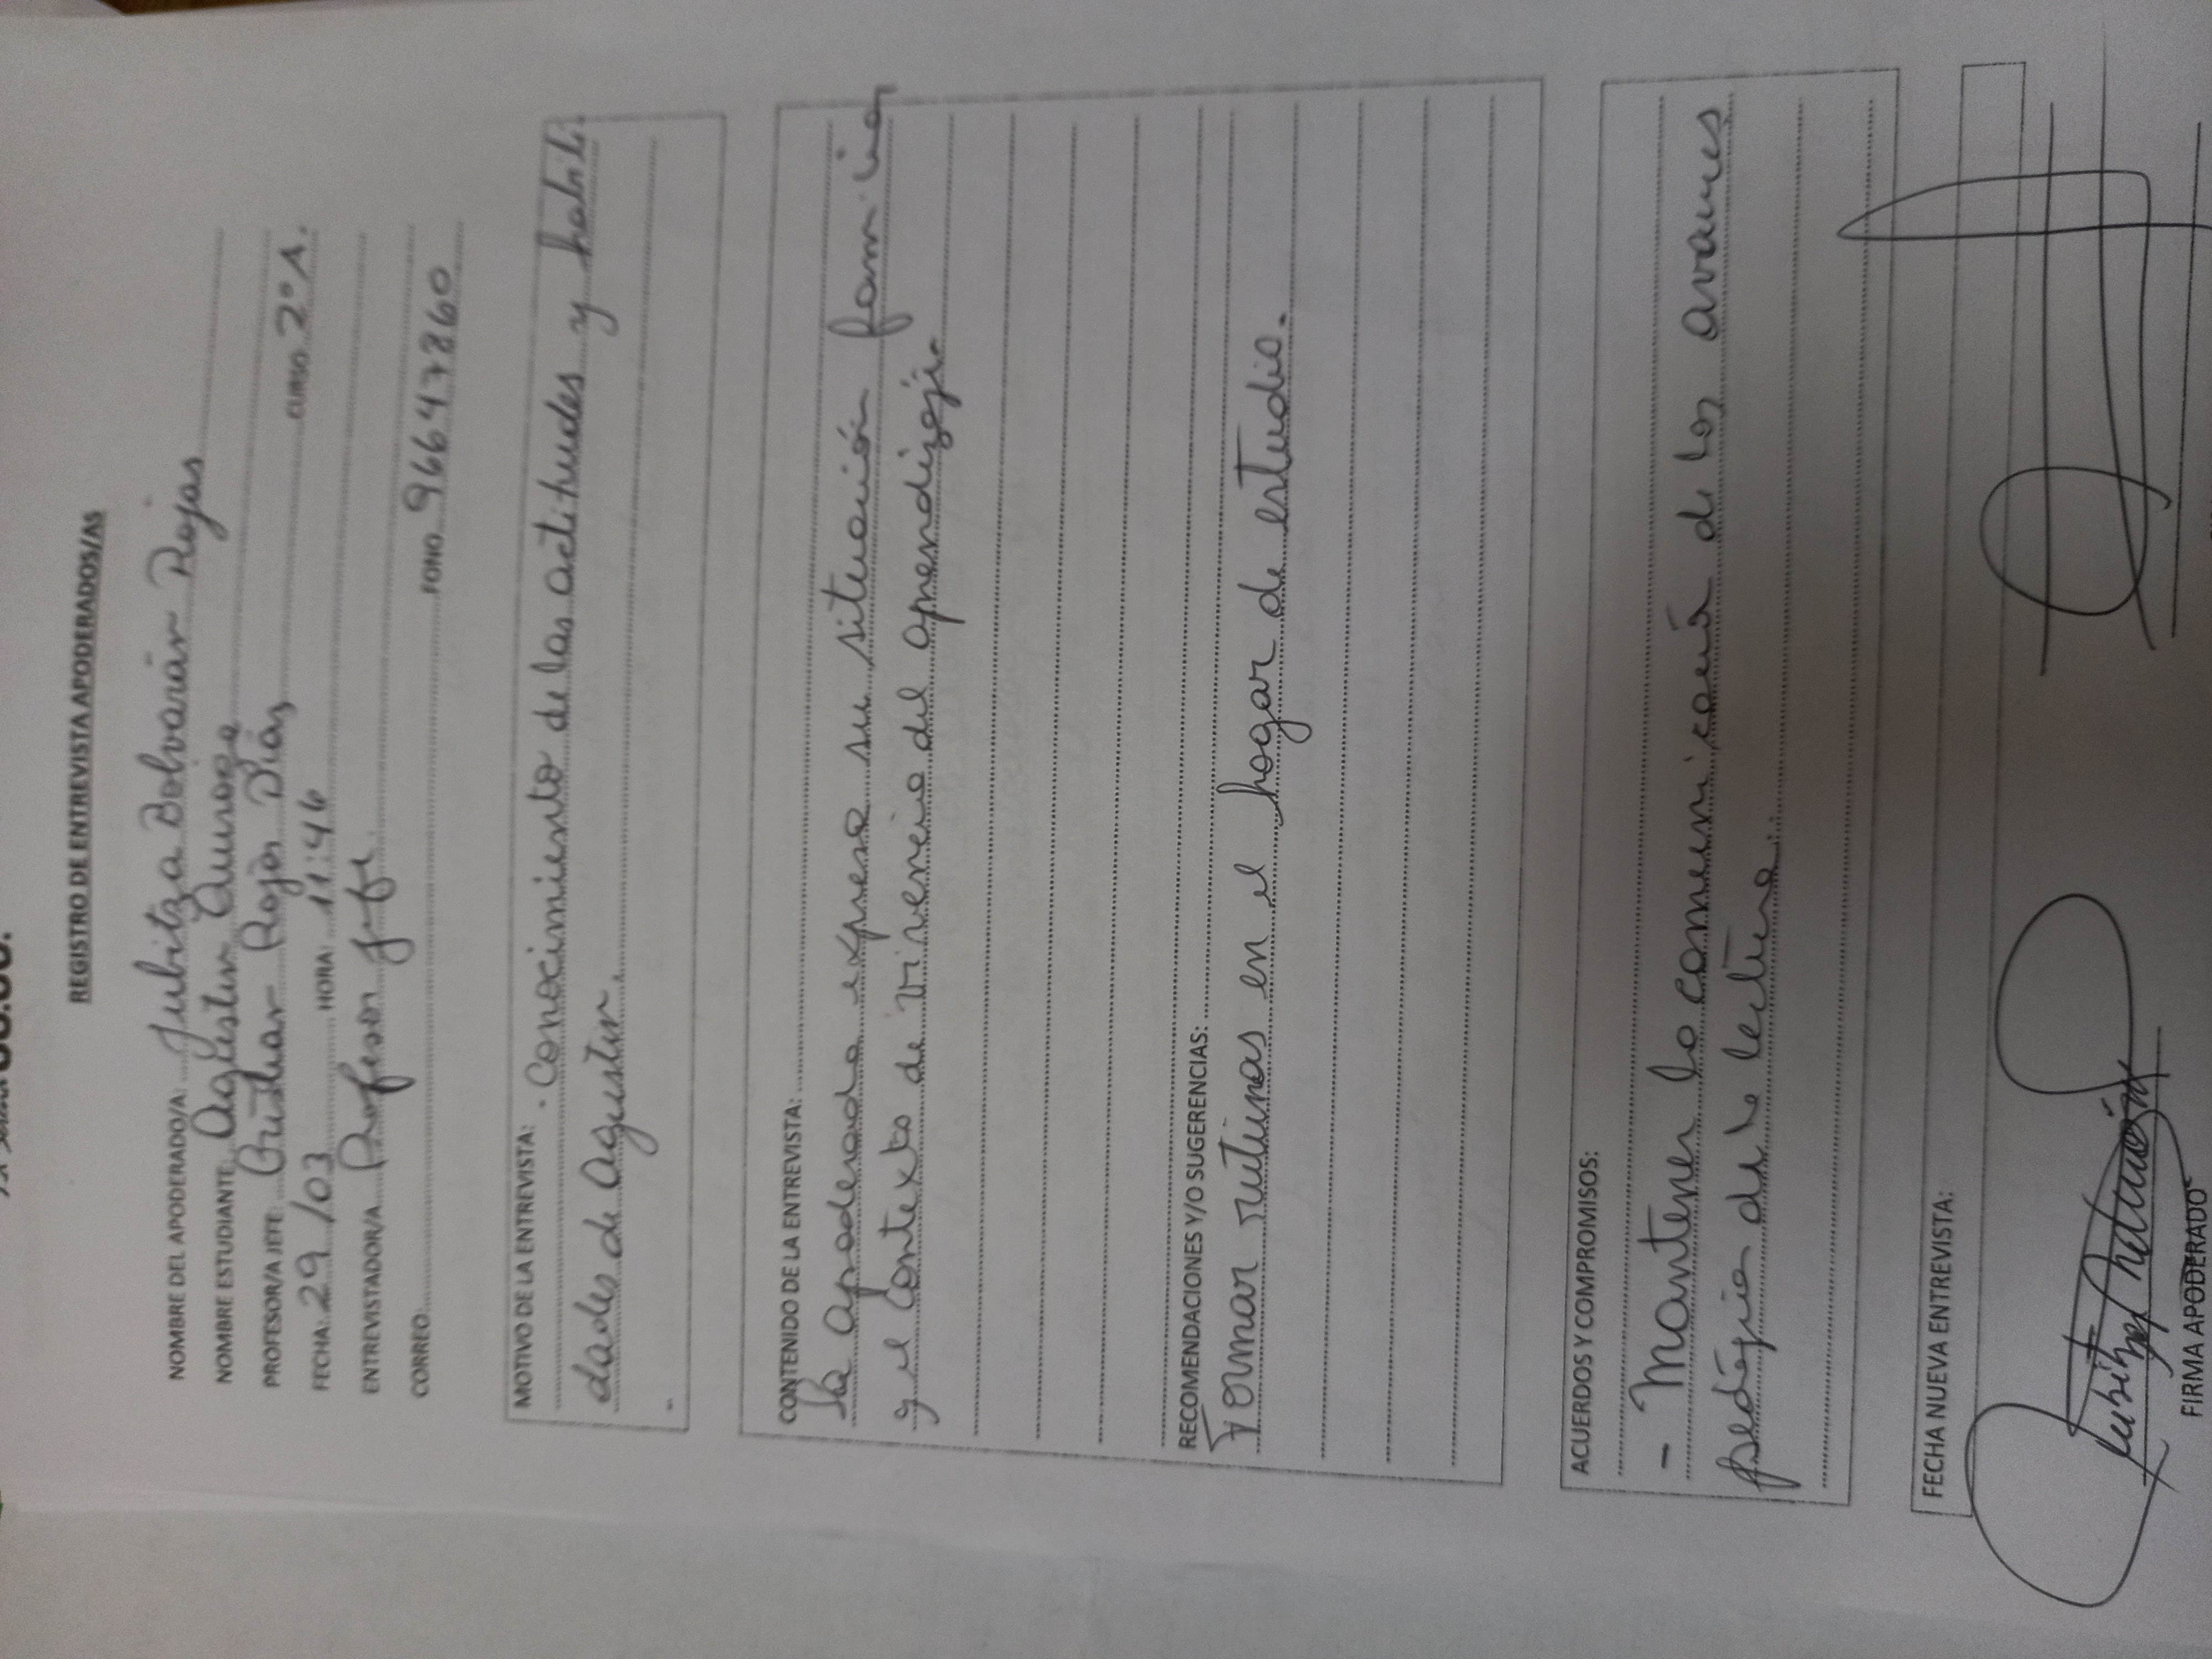 REGISTRO DE ENTREVISTA APODERADOS/AS
NOMBRE DEL APODERADO/A: Jubitza Bolvarán Rojas
NOMBRE ESTUDIANTE: Agustín
PROFESOR/A JEFE: Cristian Rojas Díaz CURSO 2° A.
FECHA: 29/03 HORA: 11:46
ENTREVISTADOR/A Profesor jefe
CORREO: FONO 966447860
MOTIVO DE LA ENTREVISTA: . Conocimiento de las actitudes y habili
dades de Agustín.
CONTENIDO DE LA ENTREVISTA:
La apoderada expresa su situación familiar
y el contexto de vivencia del aprendizaje
RECOMENDACIONES Y/O SUGERENCIAS:
Tomar rutinas en el hogar de estudio.
ACUERDOS Y COMPROMISOS:
- Mantener la comunicación de los avances
de la lectura.
FECHA NUEVA ENTREVISTA:
FIRMA APODERADO